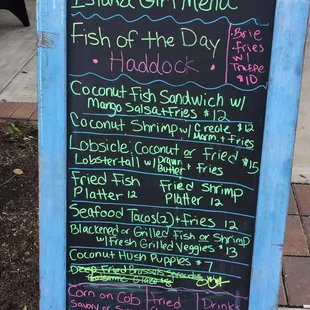 Island Girl Menu
Fish of the Day
• Haddock •
• Brie
• Fries
w/
Truffle
$10
Coconut Fish Sandwich w/
Mango Salsa + Fries $12
Coconut Shrimp w/ Creole $12
Marm. + Fries
Lobsicle, Coconut or Fried $15
Lobstertail w/ Drawn Butter + Fries
Fried Fish
Platter 12
Fried Shrimp
Platter 12
Seafood Tacos (2) + Fries 12
Blackened or Grilled Fish or Shrimp
w/ Fresh Grilled Veggies $13
Coconut Hush Puppies $7
Deep Fried Brussels Sprouts w/
Balsamic Glaze
Corn on Cob
Savory or
Fried
Drinks